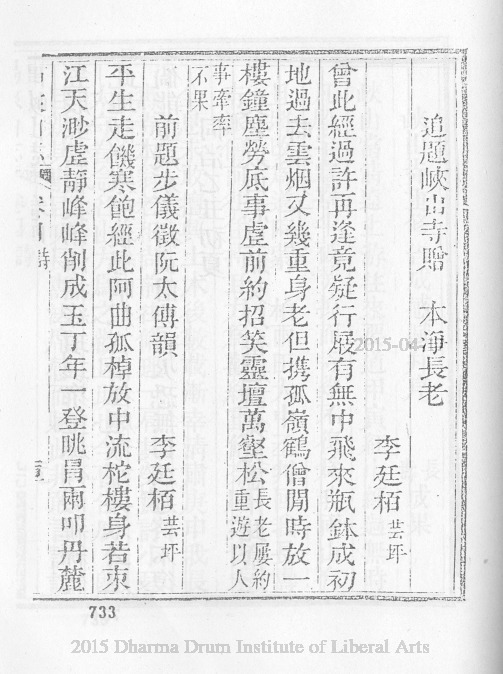 追題峽山寺贈　本淨長老
李廷栢 芸坪
曾此經過許再逢竟疑行屐有無中飛來瓶鉢成初
地過去雲烟又幾重身老但携孤嶺鶴僧閒時放一
樓鐘塵勞底事虛前約招笑靈壇萬壑松長老屢約重遊以人
事牽率不果
前題步儀徵阮太傅韻　李廷栢 芸坪
平生走饑寒飽經此阿曲孤棹放中流柁樓身若束
江天渺虛靜峰峰削成玉丁年一登眺冐雨叩丹麓
志 卷四 詩
733
2015-04
2015 Dharma Drum Institute of Liberal Arts